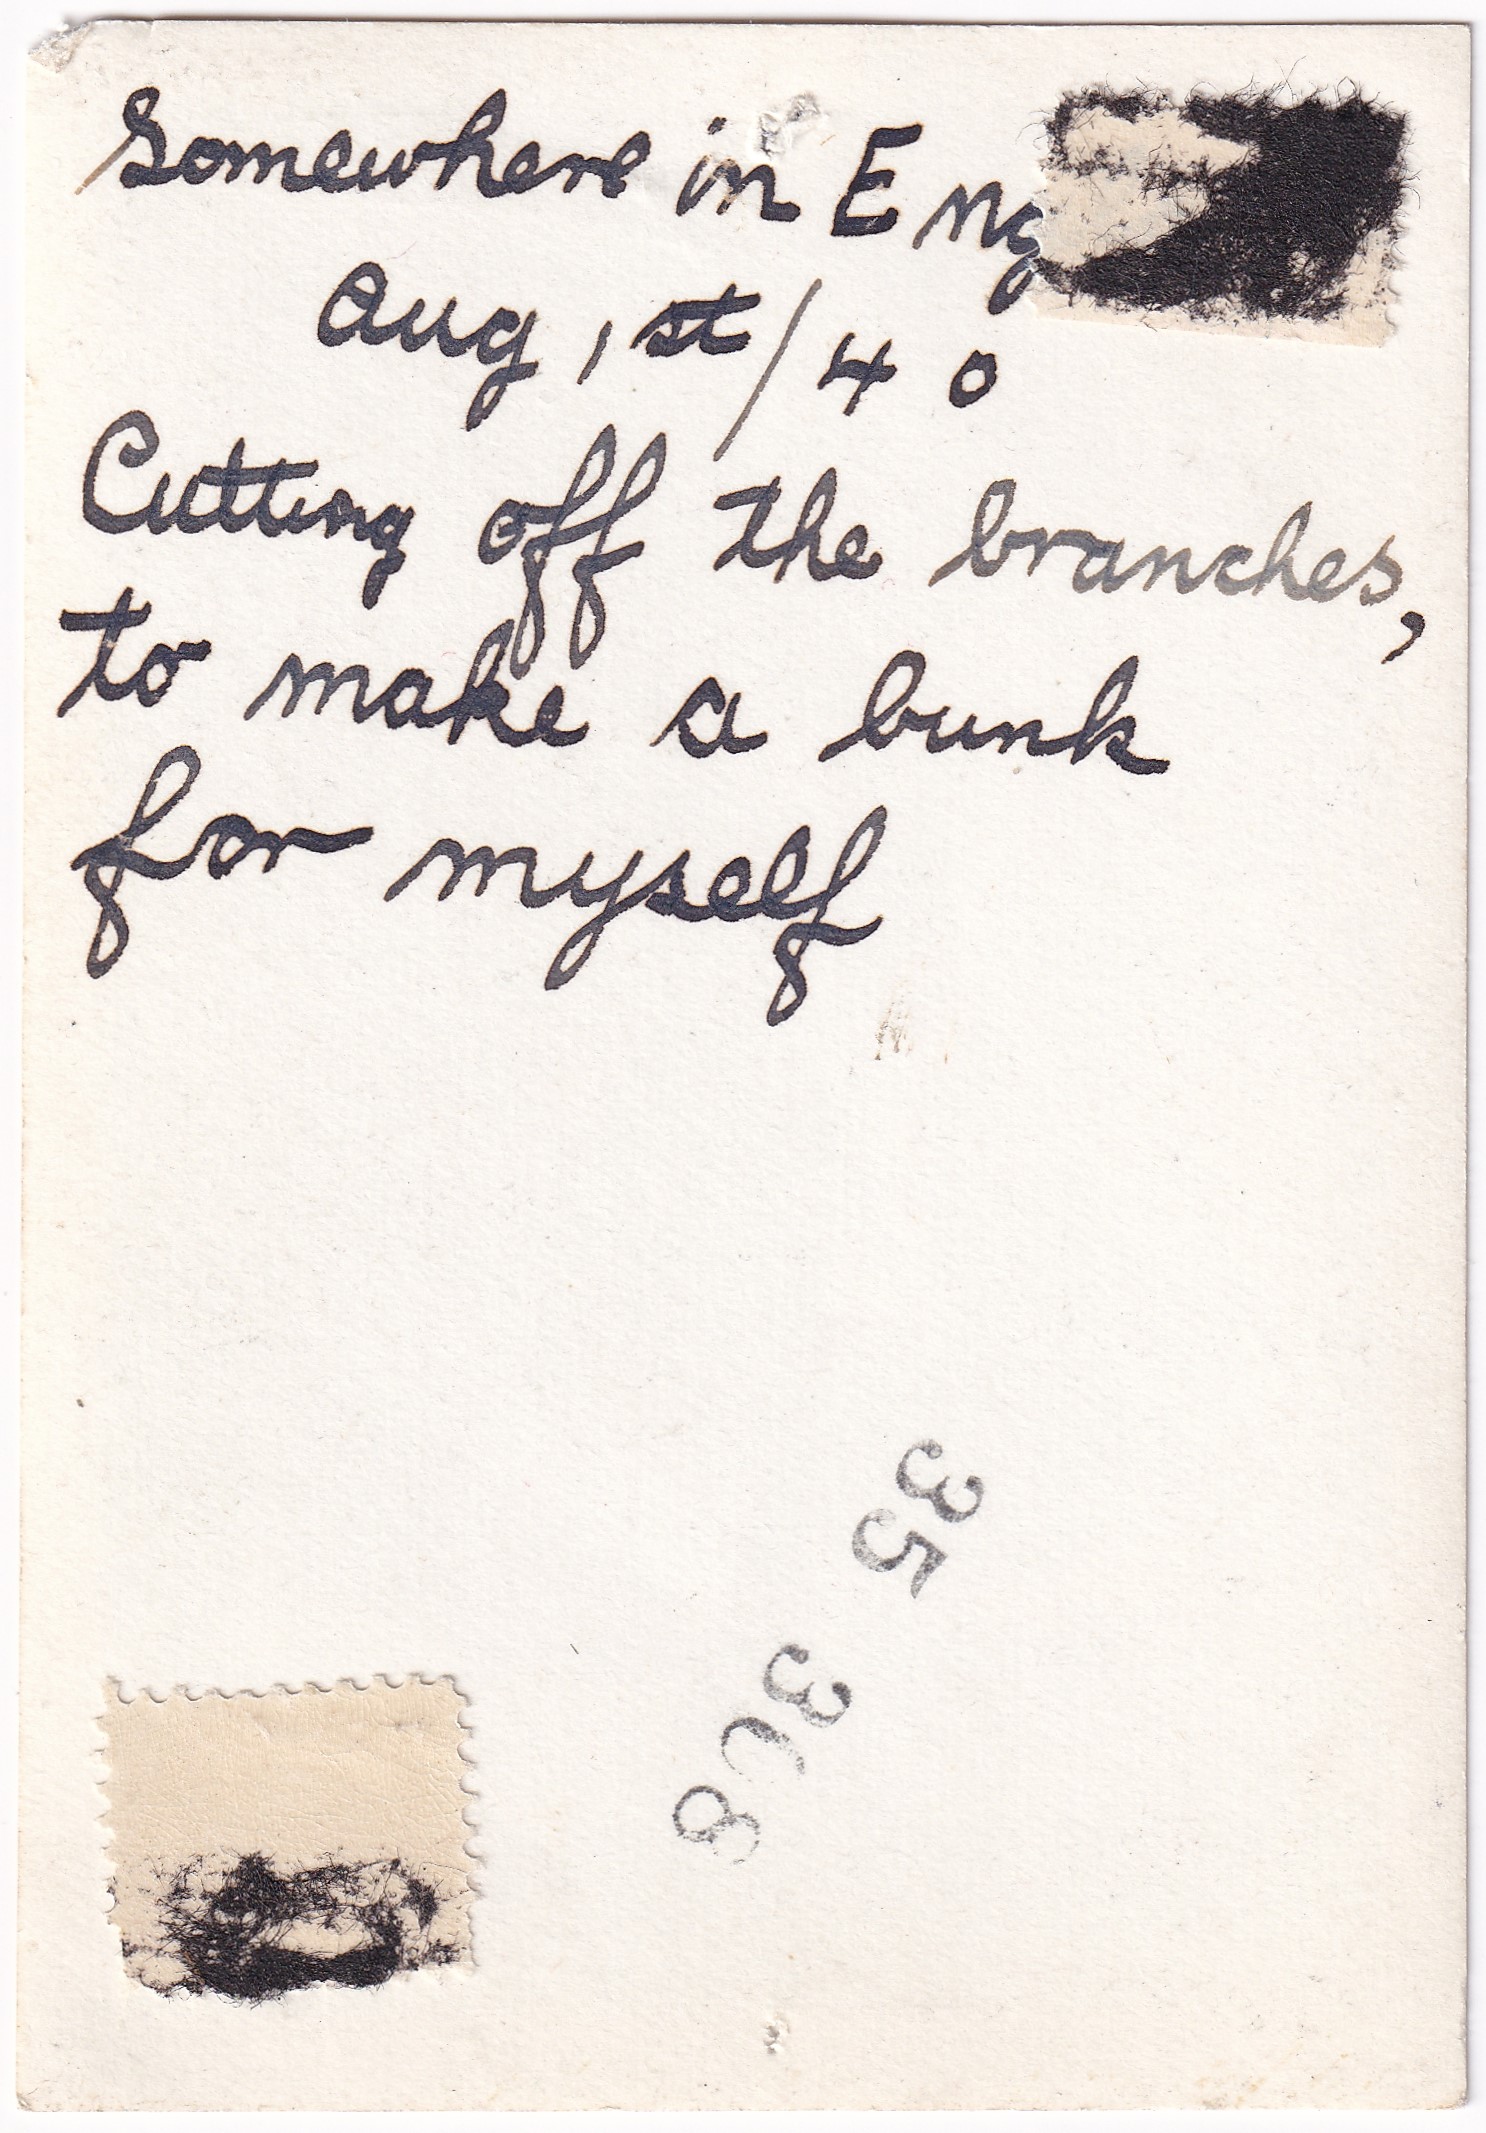 Somewhere in Eng
Aug, st/40
Cutting off the branches,
to make a bunk
for myself
35
368